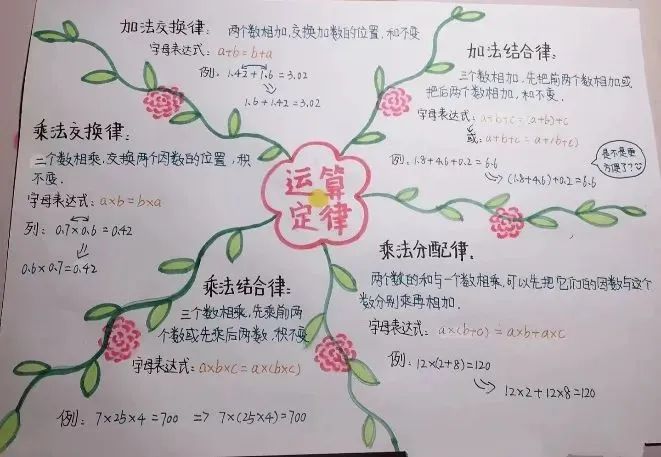 加法交换律:
两个数相加,交换加数的位置,和不变
字母表达式: a+b=b+a
例: 1.42+1.6=3.02
1.6+1.42=3.02
加法结合律:
三个数相加,先把前两个数相加或
把后两个数相加,和不变.
字母表达式: a+b+c=(a+b)+c
或: a+b+c=a+(b+c)
例: 1.8+4.6+0.2=6.6
(1.8+4.6)+0.2=6.6
是不是更
方便了?
乘法交换律:
二个数相乘,交换两个因数的位置,积
不变.
字母表达式: a×b=b×a
列: 0.7×0.6=0.42
0.6×0.7=0.42
运算
定律
乘法分配律:
两个数的和与一个数相乘,可以先把它们的因数与这个
数分别乘再相加.
字母表达式: a×(b+c)=a×b+a×c
例: 12×(2+8)=120
12×2+12×8=120
乘法结合律:
三个数相乘,先乘前两
个数或先乘后两数,积不变
字母表达式: a×b×c=a×(b×c)
例: 7×25×4=700 => 7×(25×4)=700